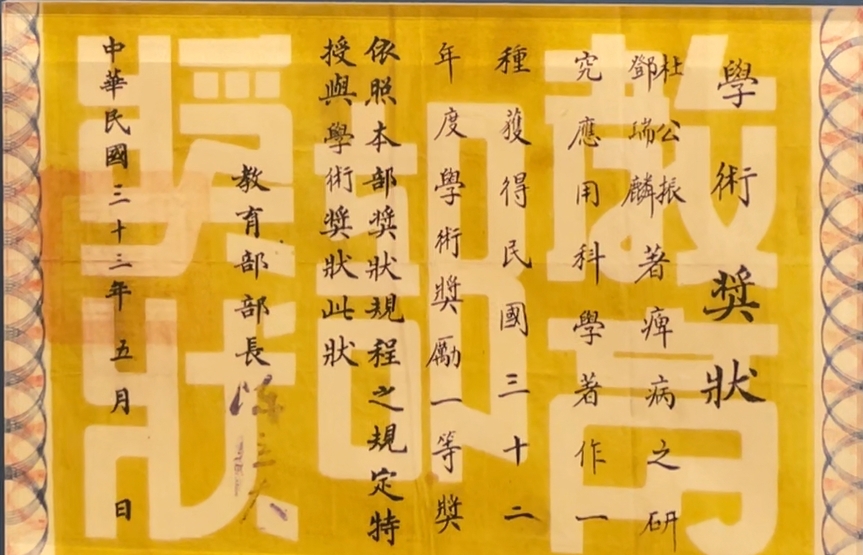 學術獎狀
杜公振
鄧瑞麟
著痺病之研
究應用科學著作一
種獲得民國三十二
年度學術獎勵一等獎
依照本部獎狀規程之規定特
授與學術獎狀此狀
教育部部長陳立夫
中華民國三十三年五月 日
教育
部
獎狀